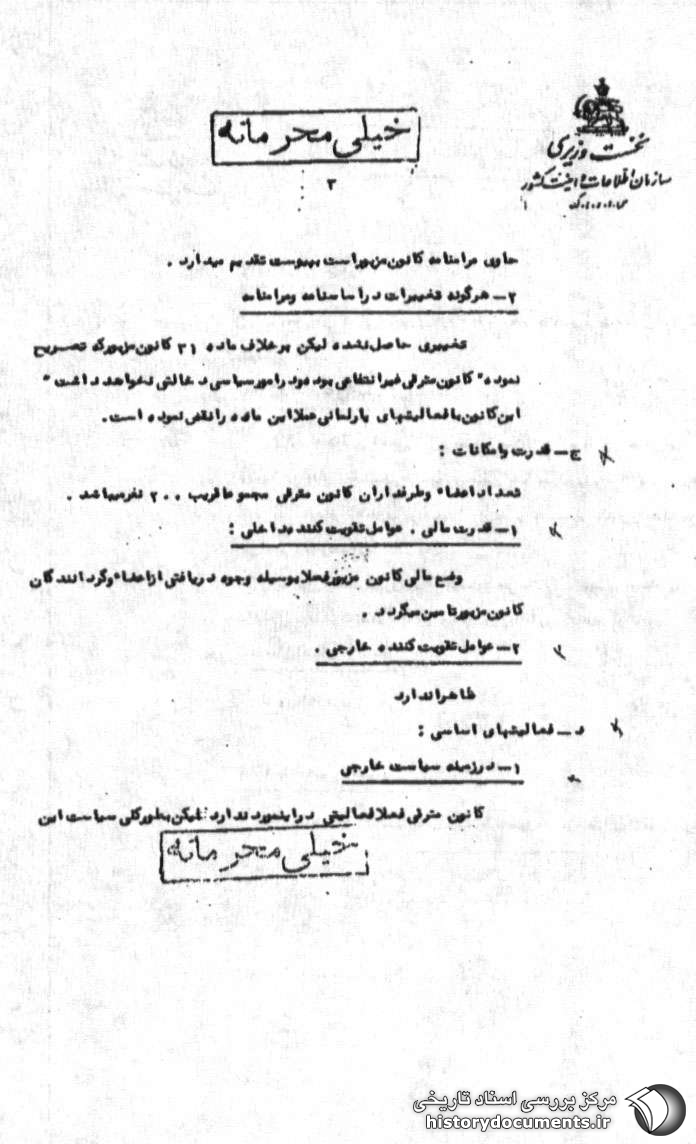 خیلی محرمانه
نخست وزیری
سازمان اطلاعات و امنیت کشور
۳
حاوی مرامنامه کانون مزبور است بپیوست تقدیم میدارد .
۲- هرگونه تغییرات در اساسنامه ومرامنامه
تغییری حاصل نشده لیکن برخلاف ماده ۳۱ کانون مزبور که تصریح
نموده " کانون مترقی غیرانتفاعی بوده ودرامور سیاسی دخالتی نخواهد داشت "
این کانون با فعالیتهای پارلمانی عملا این ماده را نقض نموده است .
ج - قدرت وامکانات :
تعداد اعضاء وطرفداران کانون مترقی مجموعا قریب ۲۰۰ نفرمیباشد .
۱- قدرت مالی . عوامل تقویت کننده داخلی :
وضع مالی کانون مزبور فعلا بوسیله وجوه دریافتی از اعضاء وگردانندگان
کانون مزبور تامین میگردد .
۲- عوامل تقویت کننده خارجی .
ظاهراندارد
د - فعالیتهای اساسی :
۱- درزمینه سیاست خارجی
کانون مترقی فعلا فعالیتی دراینمورد ندارد لیکن بطورکلی سیاست این
خیلی محرمانه
مرکز بررسی اسناد تاریخی
historydocuments.ir